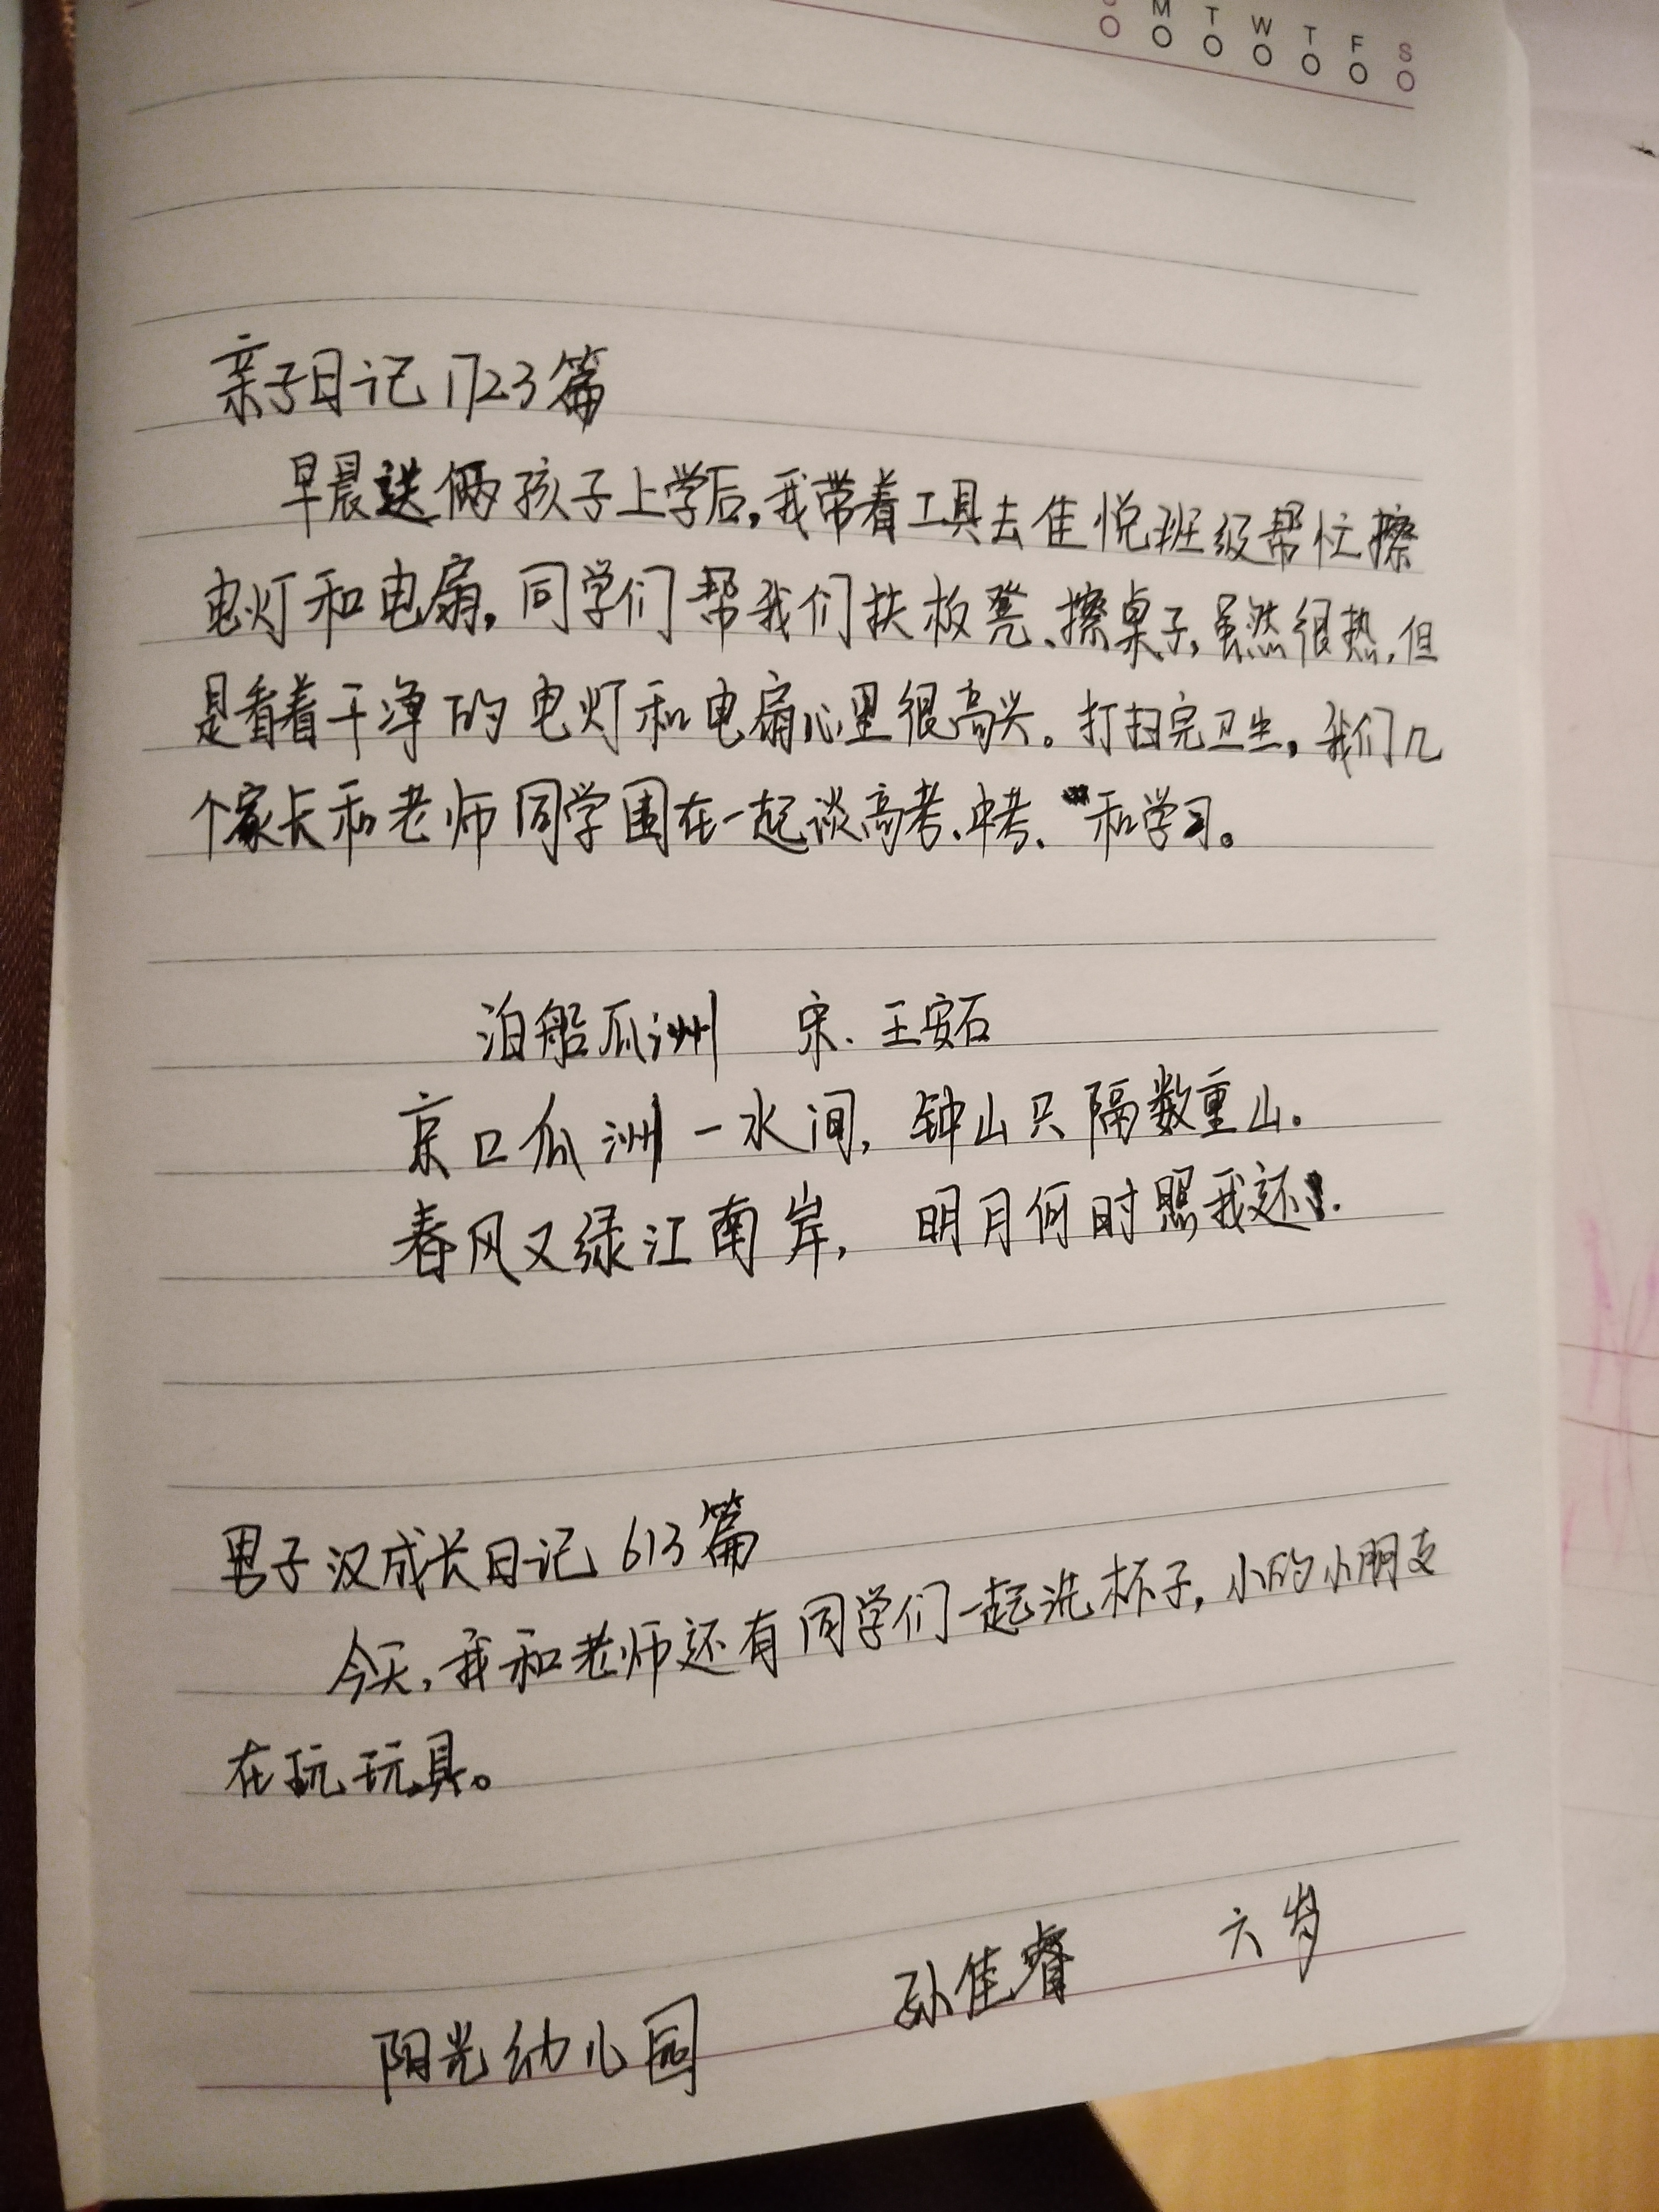 M T W T F S
亲子日记1723篇
早晨送俩孩子上学后,我带着工具去佳悦班级帮忙擦
电灯和电扇,同学们帮我们扶板凳、擦桌子,虽然很热,但
是看着干净的电灯和电扇心里很高兴。打扫完卫生,我们几
个家长和老师同学围在一起谈高考、中考、和学习。
泊船瓜洲 宋.王安石
京口瓜洲一水间,钟山只隔数重山.
春风又绿江南岸,明月何时照我还.
男子汉成长日记613篇
今天,我和老师还有同学们一起洗杯子,小的小朋友
在玩玩具。
阳光幼儿园 孙佳睿 六岁